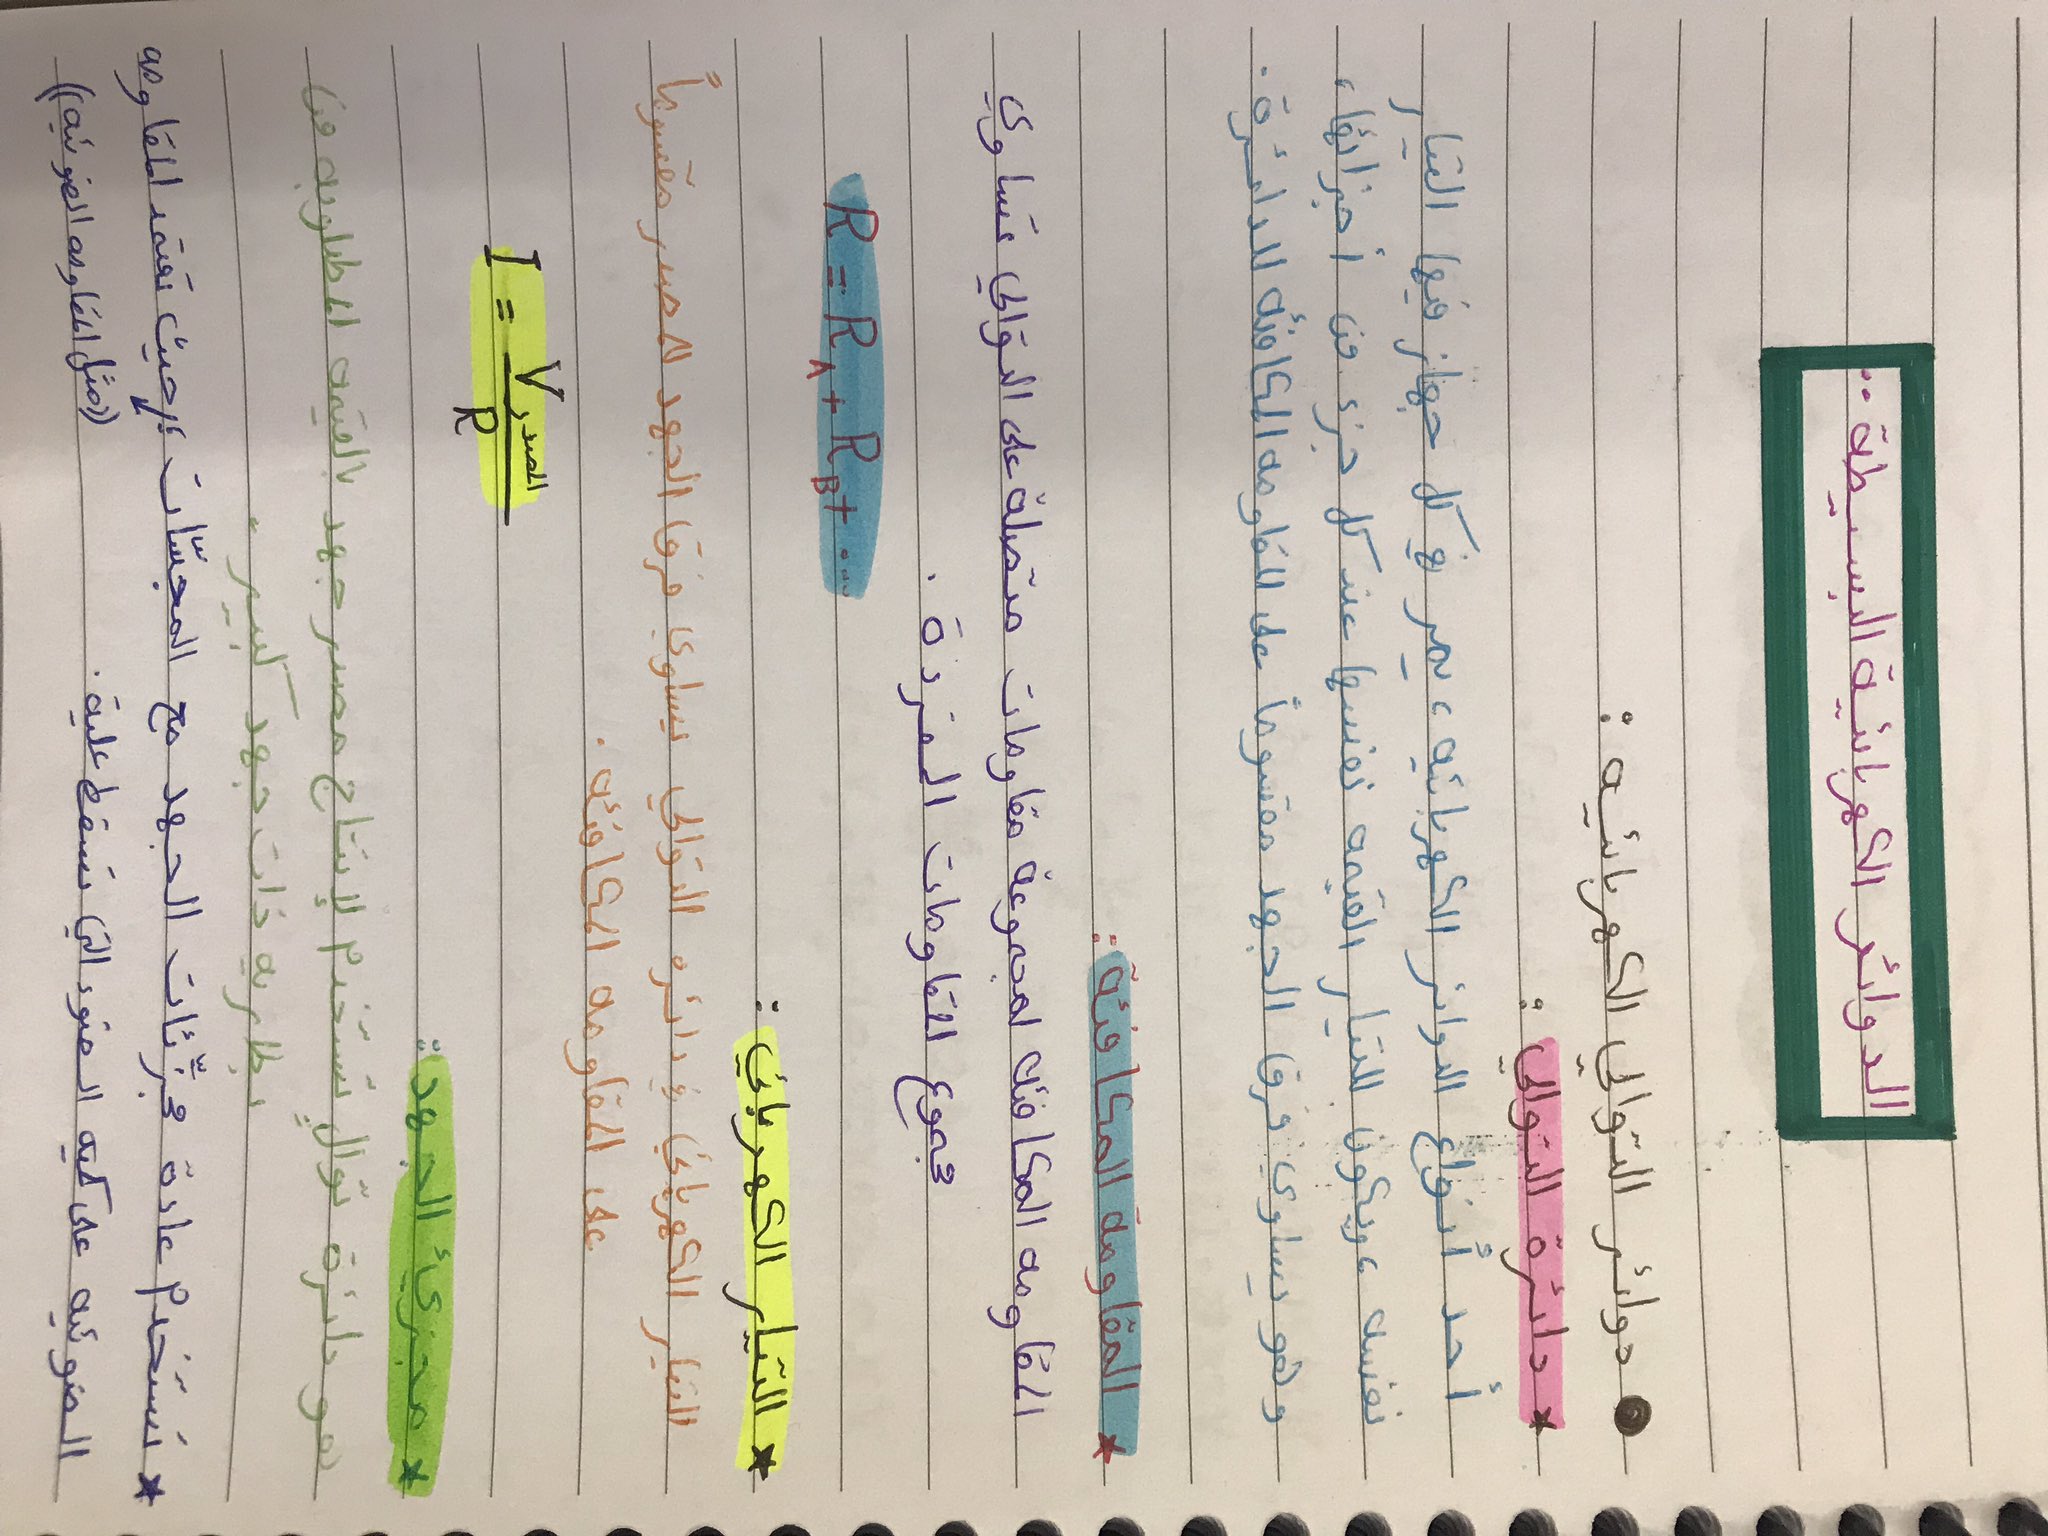 الدوائر الكهربائية البسيطة ..
● دوائر التوالي الكهربائيه :
★ دائرة التوالي :
أحد أنواع الدوائر الكهربائيه ، يمر في كل جهاز فيها التيار
نفسه ، ويكون للتيار القيمه نفسها عند كل جزء من أجزائها ،
وهو يساوي فرق الجهد مقسوماً على المقاومه المكافئه للدائرة .
★ المقاومة المكافئة :
المقاومه المكافئه لمجموعة مقاومات متصلة على التوالي تساوي
مجموع المقاومات المفردة .
R = R_A + R_B + ....
★ التيار الكهربائي :
التيار الكهربائي في دائره التوالي يساوي فرق الجهد المصدر مقسوماً
على المقاومه المكافئه .
I = V المصدر / R
★ مجزيء الجهد :
هو دائرة توالٍ تستخدم لإنتاج مصدر جهد بالقيمه المطلوبه من
بطاريه ذات جهد كبير .
★ تستخدم عادة مجزّئات الجهد مع المجسّات ، حيث تعتمد المقاومه
الضوئيه على كميه الضوء التي تسقط عليه . ((مثل المقاومه الضوئيه))